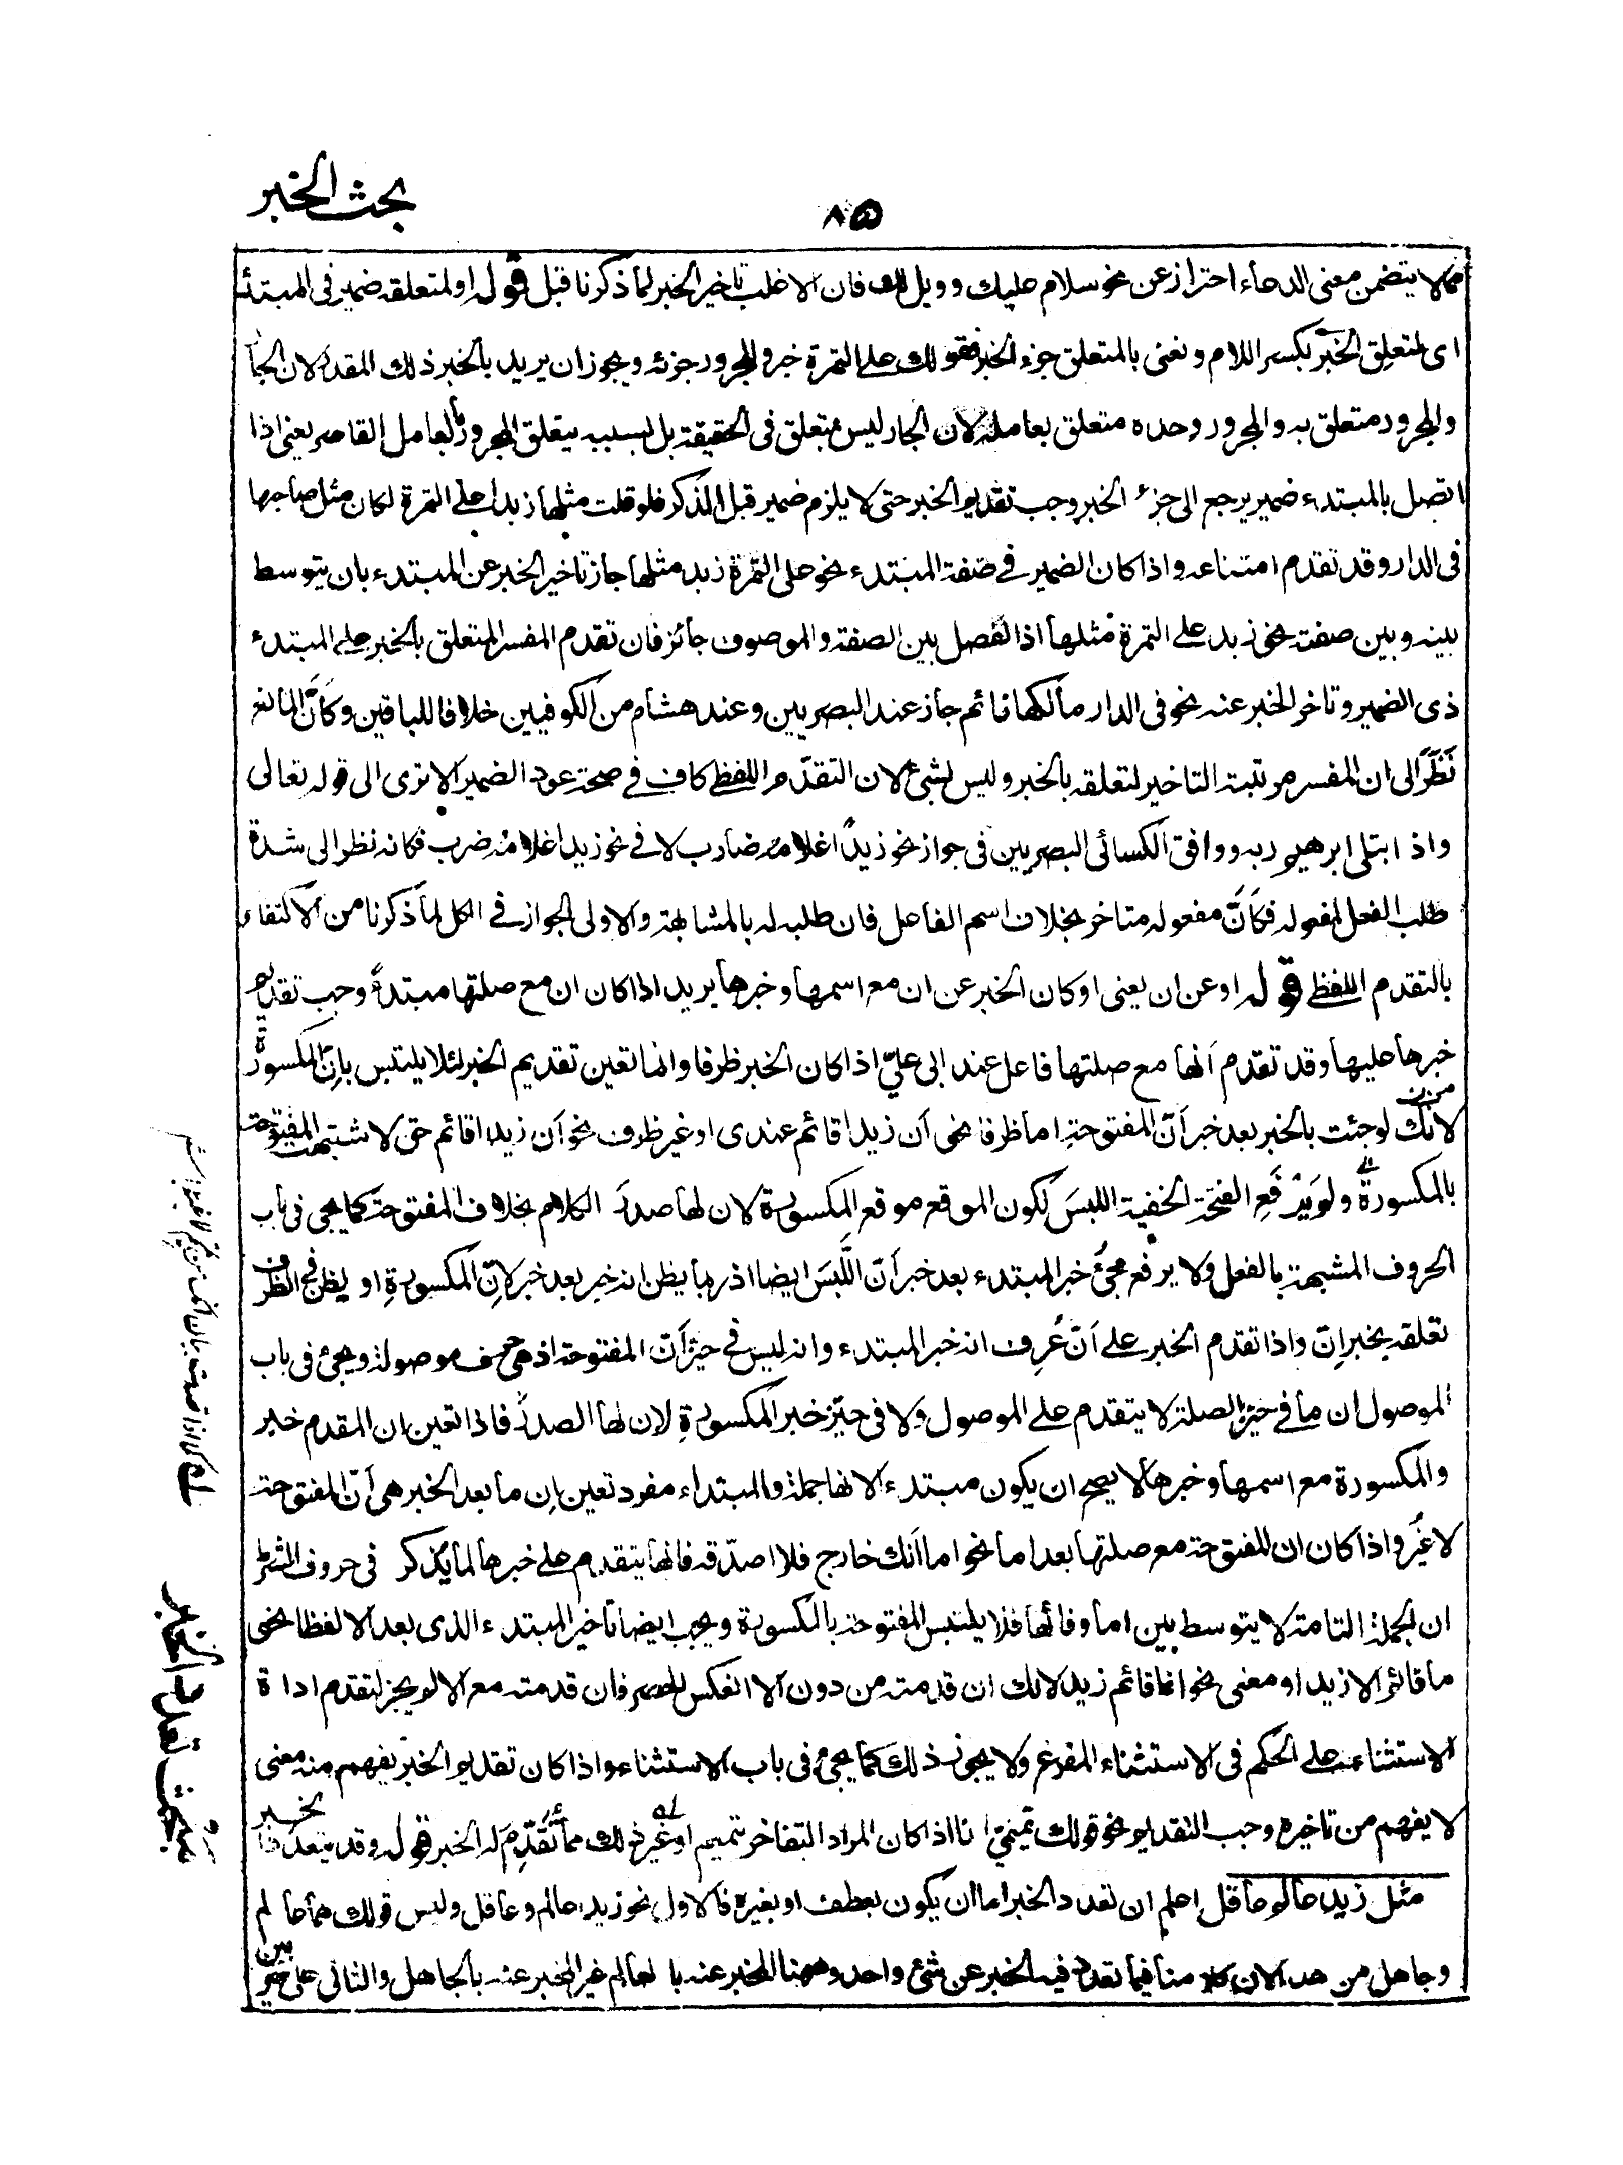 بحث الخبر
٨٥
مما لا يتضمن معنى الدعاء احتراز عن نحو سلام عليك وويل لك فان الاغلب تاخير الخبر لما ذكرنا قبل قوله او لمتعلقه ضمير في المبتدأ
اى لمتعلِق الخبر بكسر اللام ونعنى بالمتعلق جزء الخبر فقولك على التمرة خبر والمجرور جزئه ويجوز ان يريد بالخبر ذلك المقدر لان الجار
والمجرور متعلق به والمجرور وحده متعلق بعامله لان الجار ليس بمتعلق في الحقيقة بل بسببه يتعلق المجرور بالعامل القاصر يعنى اذا
اتصل بالمبتدء ضمير يرجع الى جزء الخبر وجب تقديم الخبر حتى لا يلزم ضمير قبل الذكر فلو قلت مثلها زبدا على التمرة لكان مثل صاحبها
في الدار وقد تقدم امتناعه واذا كان الضمير في صفة المبتدء نحو على التمرة زبد مثلها جاز تاخير الخبر عن المبتدء بان يتوسط
بينه وبين صفته نحو زبد على التمرة مثلها اذ الفصل بين الصفة والموصوف جائز فان تقدم المفسر المتعلق بالخبر على المبتدء
ذى الضمير وتاخر الخبر عنه نحو في الدار مالكها نائم جاز عند البصريين وعند هشام من الكوفيين خلافا للباقين وكأنّ المانع
نَظَرَ الى ان المفسر مرتبته التاخير لتعلقه بالخبر وليس بشئ لان التقدّم اللفظى كاف في صحة عود الضمير الا ترى الى قوله تعالى
واذ ابتلى ابرهيم ربه ووافق الكسائى البصريين في جواز نحو زيدًا غلامه ضارب لا في نحو زيدا غلامه ضرب فكانه نظر الى شدة
طلب الفعل لمفعوله فكأنّ مفعوله متاخر بخلاف اسم الفاعل فان طلبه له بالمشابهة والاولى الجواز في الكل لما ذكرنا من الاكتفاء
بالتقدم اللفظى قوله او عن ان يعنى او كان الخبر عن ان مع اسمها وخبرها يريد اذا كان ان مع صلتها مبتدءً وجب تقديم
خبرها عليها وقد تقدم انها مع صلتها فاعل عند ابى علىّ اذا كان الخبر ظرفا وانما تعين تقديم الخبر لئلا يلتبس بانّ المكسورة
لانك لو جئت بالخبر بعد خبر أنّ المفتوحة اما ظرفا نحو أن زيدا قائم عندى او غير ظرف نحو أن زيدا قائم حق لاشتبهت المفتوحة
بالمكسورة ولم يَرفَعِ الفتحة الخفية اللبسَ لكون الموقع موقع المكسورة لان لها صدر الكلام بخلاف المفتوحة كما يجئ في باب
الحروف المشبهة بالفعل ولا يرفع مجئُ خبر المبتدء بعد خبر أنّ اللَّبسَ ايضا اذ ربما يظن انه خبر بعد خبر لانّ المكسورةِ او يظن في الظرف
تعلقه بخبر اِنّ واذا تقدم الخبر على أنّ عُرِف انه خبر المبتدء وانه ليس في حيز أنّ المفتوحة اذ هى حرف موصولة ويجئ في باب
الموصول ان ما في حيز الصلة لا يتقدم على الموصول ولا في حيّز خبر المكسورةِ لان لها الصدر فاذا تعين ان المقدم خبر
والمكسورة مع اسمها وخبرها لا يصح ان يكون مبتدء لانها جملة والمبتداء مفرد تعين ان ما بعد الخبر هى أنّ المفتوحة
لا غير واذا كان ان المفتوحة مع صلتها بعد اما نحو اما أنك خارج فلا اصدّقه فانها يتقدم على خبرها لما يذكر في حروف الشرط
ان الجملة التامة لا يتوسط بين اما وفائها فلا يلتبس المفتوحة بالمكسورة ويجب ايضا تاخير المبتدء الذى بعد الا لفظا نحو
ما قائم الا زيد او معنى نحو انما قائم زيد لانك ان قدمته من دون الا انعكس الحصر فان قدمته مع الا لم يجز لتقدم اداة
الاستثناء على الحكم في الاستثناء المفرغ ولا يجوز ذلك كما يجئ في باب الاستثناء واذا كان تقديم الخبر يفهم منه معنى
لا يفهم من تاخيره وجب التقديم نحو قولك تميمىّ انا اذا كان المراد التفاخر بتميم او غير ذلك مما تُقدِّمَ له الخبر قوله وقد يتعدد الخبر
مثل زيد عالم عاقل اعلم ان تعدد الخبر اما ان يكون بعطف او بغيره فالاول نحو زيد عالم وعاقل وليس قولك هما عالم
وجاهل من هذا لان كلامنا فيما تعدد فيه الخبر عن شئ واحد وههنا المخبر عنه بالعالم غير المخبر عنه بالجاهل والثانى على ضربين
مبحث تعدد الخبر